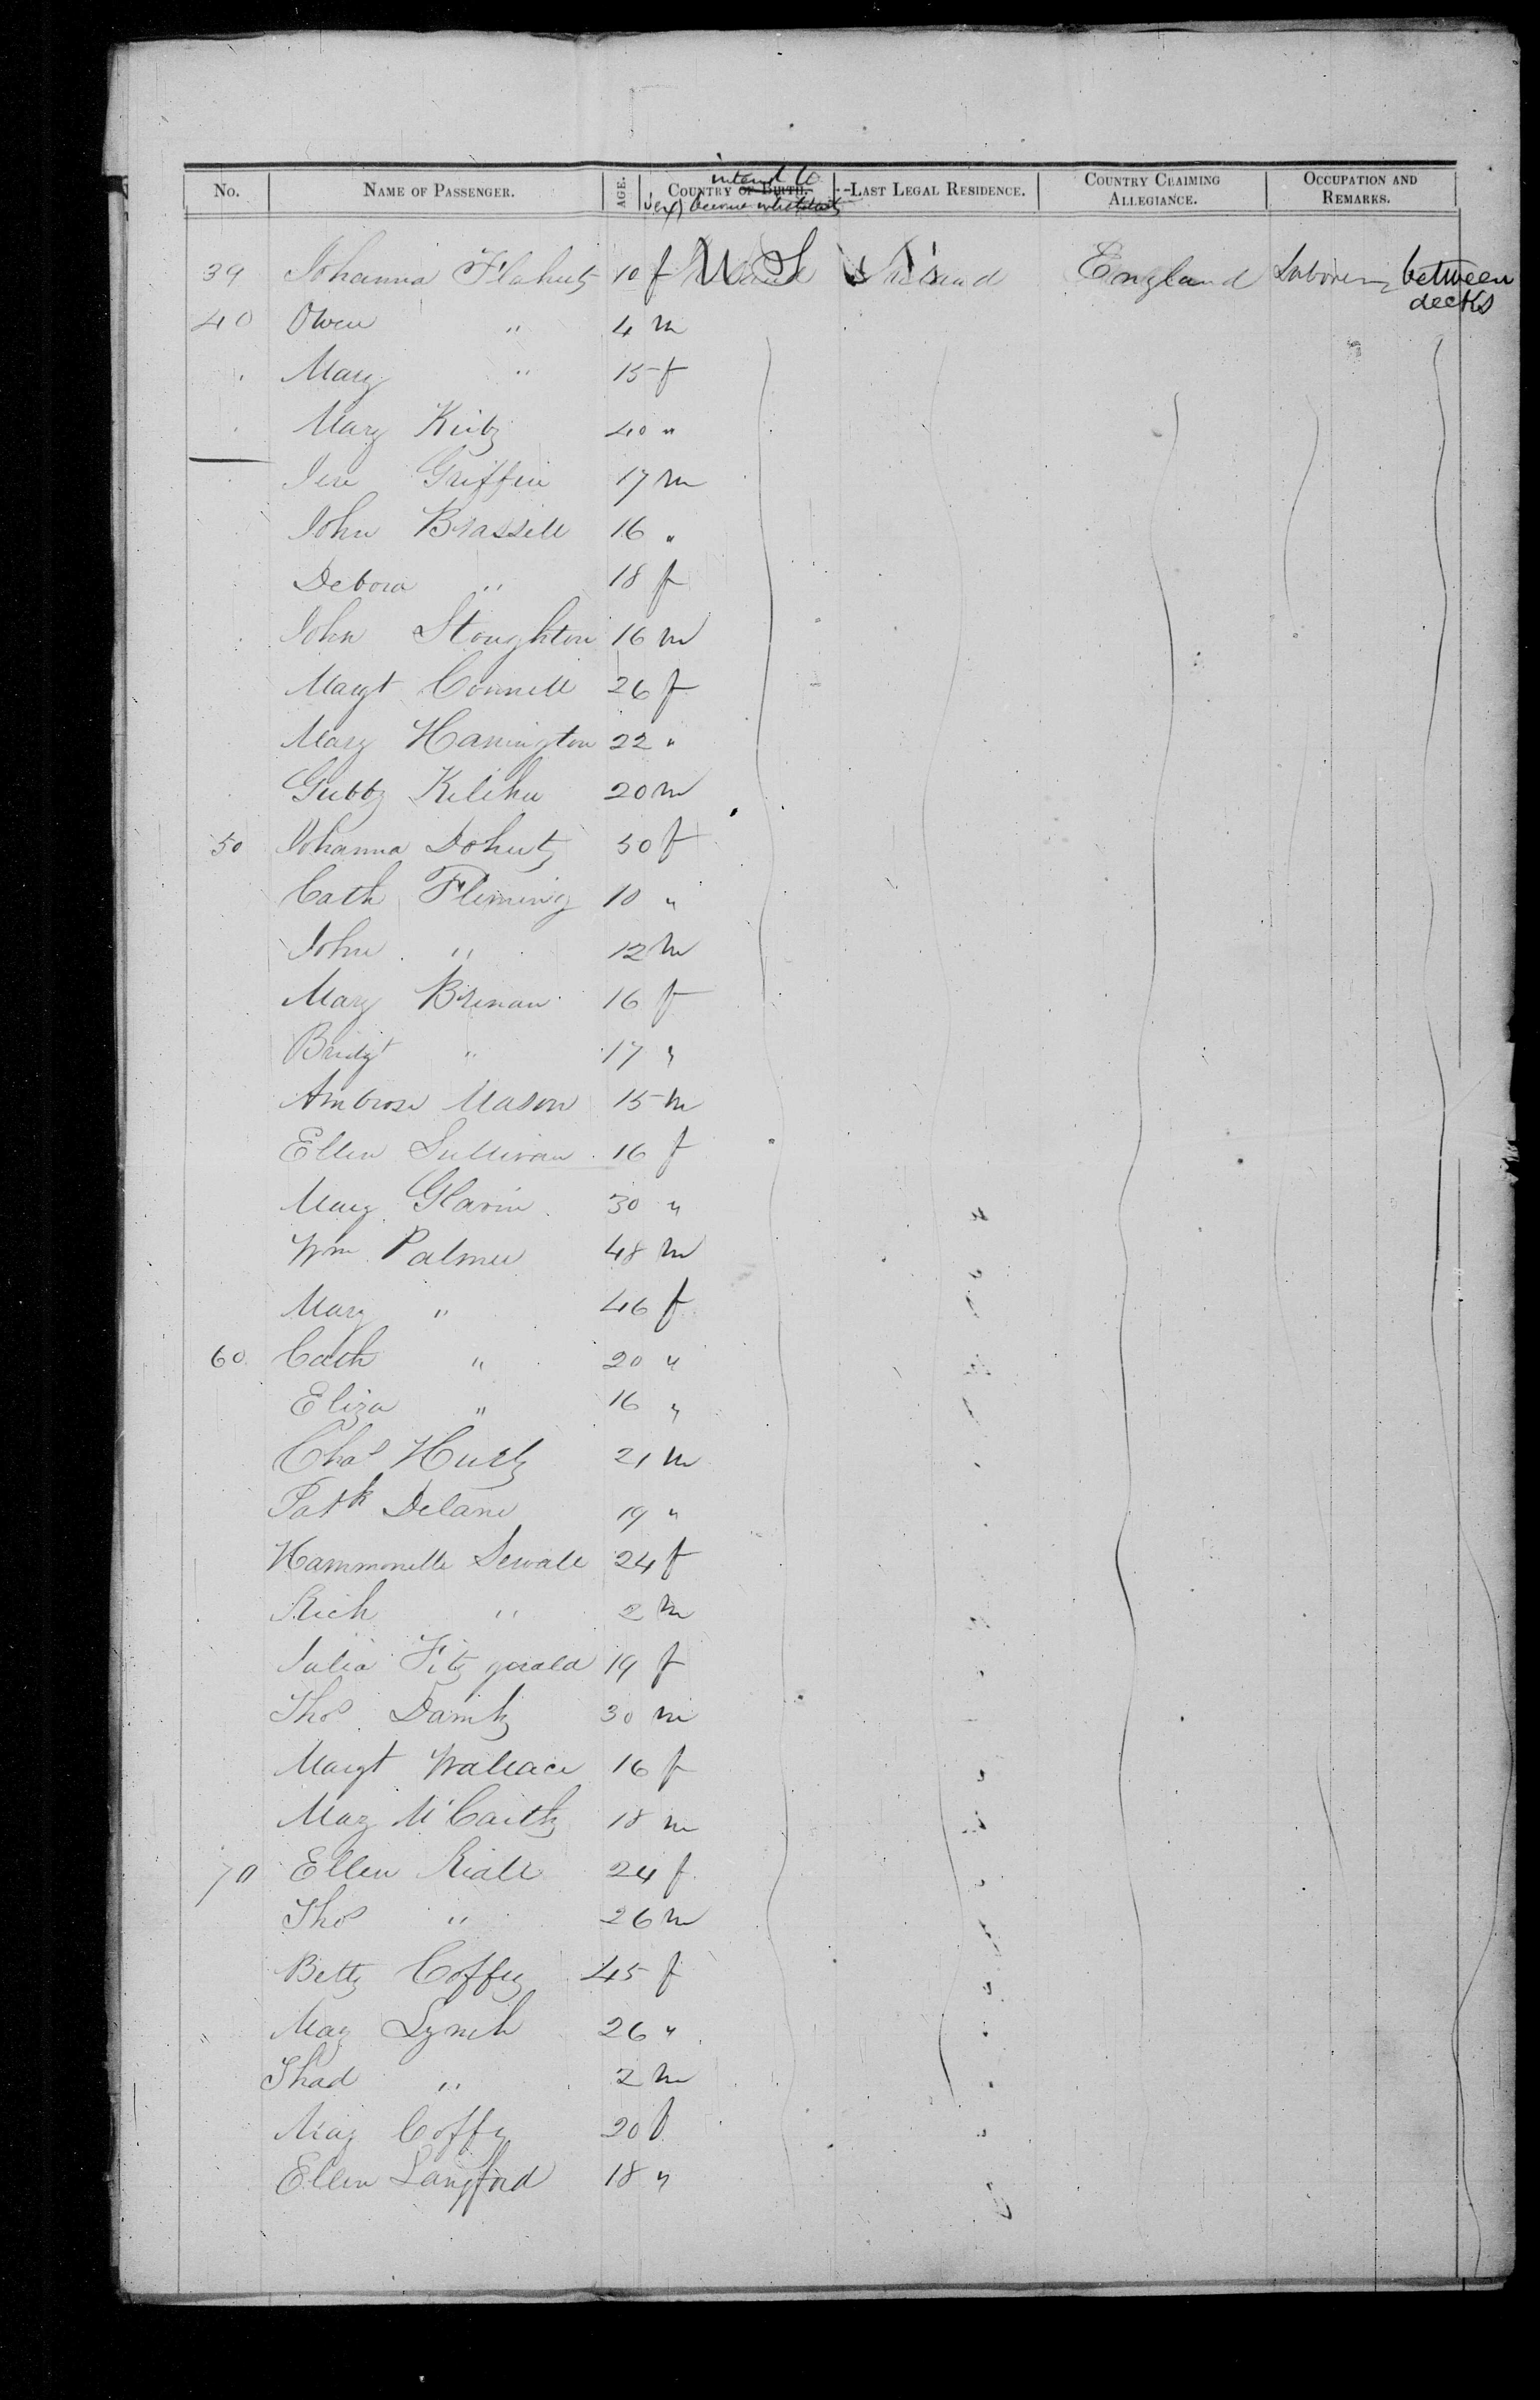 No. NAME OF PASSENGER. AGE. Sex COUNTRY OF BIRTH. intend to become inhabitants LAST LEGAL RESIDENCE. COUNTRY CLAIMING ALLEGIANCE. OCCUPATION AND REMARKS.
39 Johanna Flaherty 10 f U S Ireland England Laborers between decks
40 Owen " 4 m
Mary " 15 f
Mary Kirby 40 "
Jere Griffin 17 m
John Brassill 16 "
Debora " 18 f
John Stoughton 16 m
Margt Connell 26 f
Mary Harrington 22 "
Gubby 20 m
50 Johanna Doherty 50 f
Cath Fleming 10 "
John " 12 m
Mary Brenan 16 f
Bridgt " 17 "
Ambrose Mason 15 m
Ellen Sullivan 16 f
Mary Glavin 30 "
Wm Palmer 48 m
Mary " 46 f
60 Cath " 20 "
Eliza " 16 "
Chas Hurly 21 m
Patk Delane 19 "
Hammonelle Sewall 24 f
Rich " 2 m
Julia Fitzgerald 19 f
Thos 30 m
Margt Wallace 16 f
May McCarthy 18 m
70 Ellen Riall 24 f
Thos " 26 m
Betty Coffey 45 f
May Lynch 26 "
Thad " 2 m
May Coffey 20 f
Ellen Langford 18 "